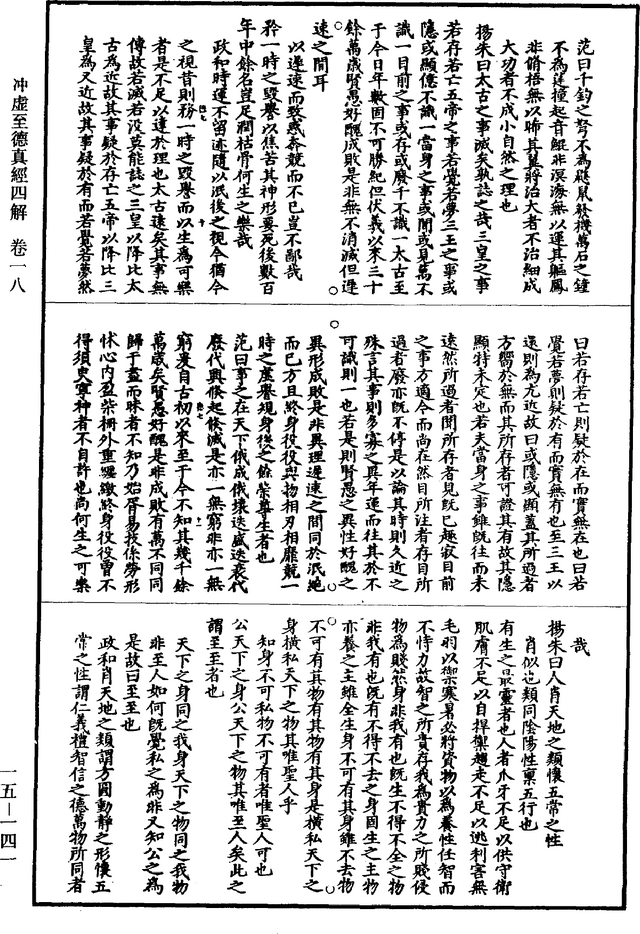 冲虛至德真經四解 卷一八
范曰千鈞之弩不為鼷鼠發機萬石之鐘
不為莛撞起音鯤非溟海無以運其軀鳳
非脩梧無以晞其翼將治大者不治細成
大功者不成小自然之理也
揚朱曰太古之事滅矣孰誌之哉三皇之事
若存若亡五帝之事若覺若夢三王之事或
隱或顯億不識一當身之事或聞或見萬不
識一目前之事或存或廢千不識一太古至
于今日年數固不可勝紀但伏羲以來三十
餘萬歲賢愚好醜成敗是非無不消滅但遲
速之間耳
以遲速而致惑奔競而不已豈不鄙哉
矜一時之毀譽以焦苦其神形要死後數百
年中餘名豈足潤枯骨何生之樂哉
政和時運不留迹隨以泯後之視今猶今
之視昔則務一時之毀譽而以生為可樂
者是不足以達於理也太古遠矣其事無
傳故若滅若没莫能誌之三皇以降比太
古為近故其事疑於存亡五帝以降比三
皇為又近故其事疑於有而若覺若夢然
曰若存若亡則疑於在而實無在也曰若
覺若夢則疑於有而實無有也至三王以
還則為尤近故曰或隱或顯蓋其所過者
方嚮於無而其所存者可證其有故其隱
顯特未定也若夫當身之事雖既往而未
遠然所過者聞所存者見既已趣寂目前
之事方適今而尚在然目所注者存目所
過者廢亦既不停是以論其時則久近之
殊言其事則多寡之異年運而往其於不
可識則一也若是則賢愚之異性好醜之
異形成敗是非異理遲速之間同於泯絶
而已方且終身役役與物相刃相靡競一
時之虚譽規身後之餘榮尊生者也
范曰事之在天下俄成俄壞迭盛迭衰代
廢代興倏起倏滅是亦一無窮非亦一無
窮爰自古初以來至于今不知其幾千餘
萬歲矣賢愚好醜是非成敗有萬不同同
歸于盡而昧者不知乃始胥易技係勞形
怵心内盈柴栅外重纆繳終身役役曾不
得須臾寧神者不自許也尚何生之可樂
哉
揚朱曰人肖天地之類懷五常之性
肖似也類同陰陽性稟五行也
有生之最靈者也人者爪牙不足以供守衛
肌膚不足以自捍禦趨走不足以逃利害無
毛羽以禦寒暑必將資物以為養性任智而
不恃力故智之所貴存我為貴力之所賤侵
物為賤然身非我有也既生不得不全之物
非我有也既有不得不去之身固生之主物
亦養之主雖全生身不可有其身雖不去物
不可有其物有其物有其身是横私天下之
身横私天下之物其唯聖人乎
知身不可私物不可有者唯聖人可也
公天下之身公天下之物其唯至人矣此之
謂至至者也
天下之身同之我身天下之物同之我物
非至人如何既覺私之為非又知公之為
是故曰至至也
政和肖天地之類謂方圓動靜之形懷五
常之性謂仁義禮智信之德萬物所同者
一五—一四一